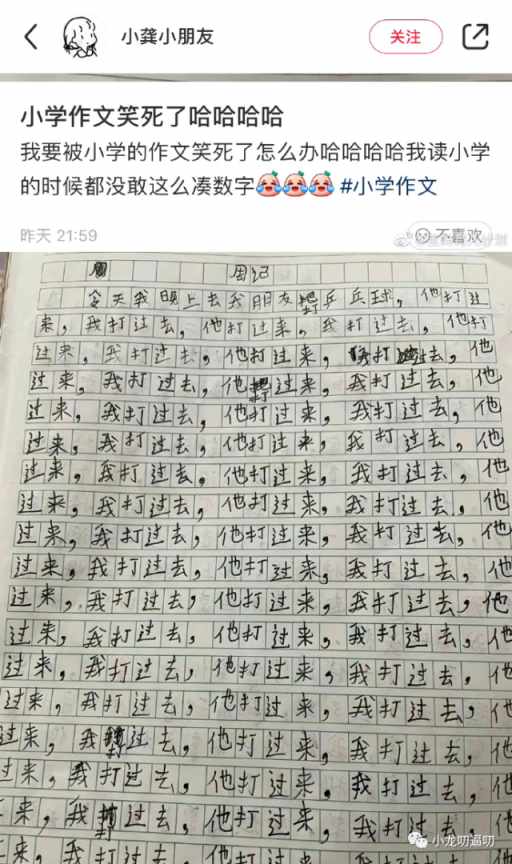 小龚小朋友
关注
小学作文笑死了哈哈哈哈
我要被小学的作文笑死了怎么办哈哈哈哈我读小学
的时候都没敢这么凑数字 #小学作文
昨天 21:59
不喜欢
周记
今天我晚上去我朋友打乒乓球，他打过
来，我打过去，他打过来，我打过去，他打
过来，我打过去，他打过来，我打过去，他
过来，我打过去，他打过来，我打过去，他
过来，我打过去，他打过来，我打过去，他
过来，我打过去，他打过来，我打过去，他
过来，我打过去，他打过来，我打过去，他
过来，我打过去，他打过来，我打过去，他
过来，我打过去，他打过来，我打过去，他
过来，我打过去，他打过来，我打过去，他
过来，我打过去，他打过来，我打过去，他
过来，我打过去，他打过来，我打过去，他
过来，我打过去，他打过来，我打过去，他
过来，我打过去，他打过来，我打过去，他
过来，我打过去，他打过来，我打过去，他
过来，我打过去，他打过来，我打过去，他
来，我打过去，他打过来，我打过去，他
来，我打过去，他打过来，我打过去
小龙叨逼叨